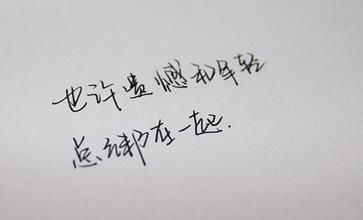 也许遗憾和年轻
总is绑在一起.